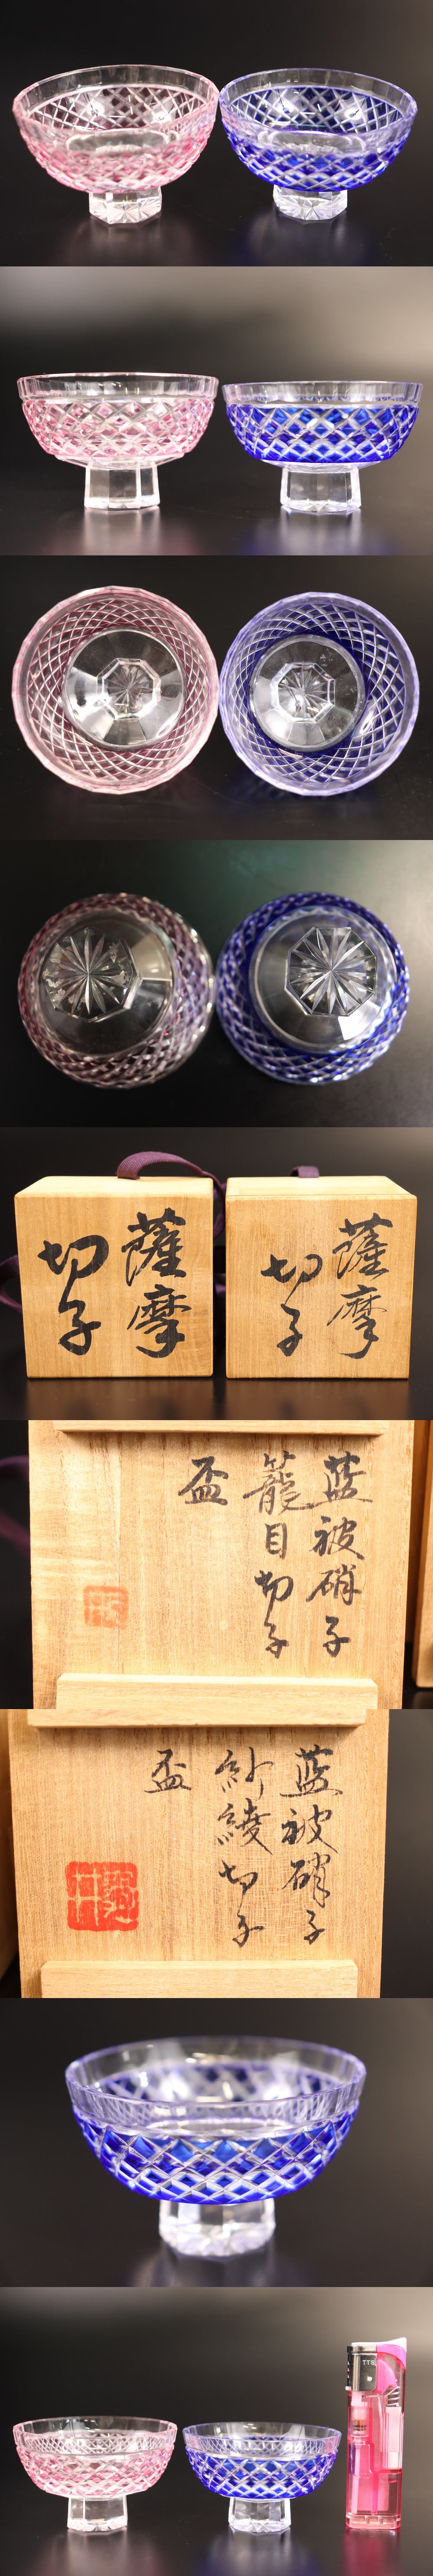 薩摩
切子
薩摩
切子
藍被硝子
籠目切子
盃
藍被硝子
紗綾切子
盃
TTS